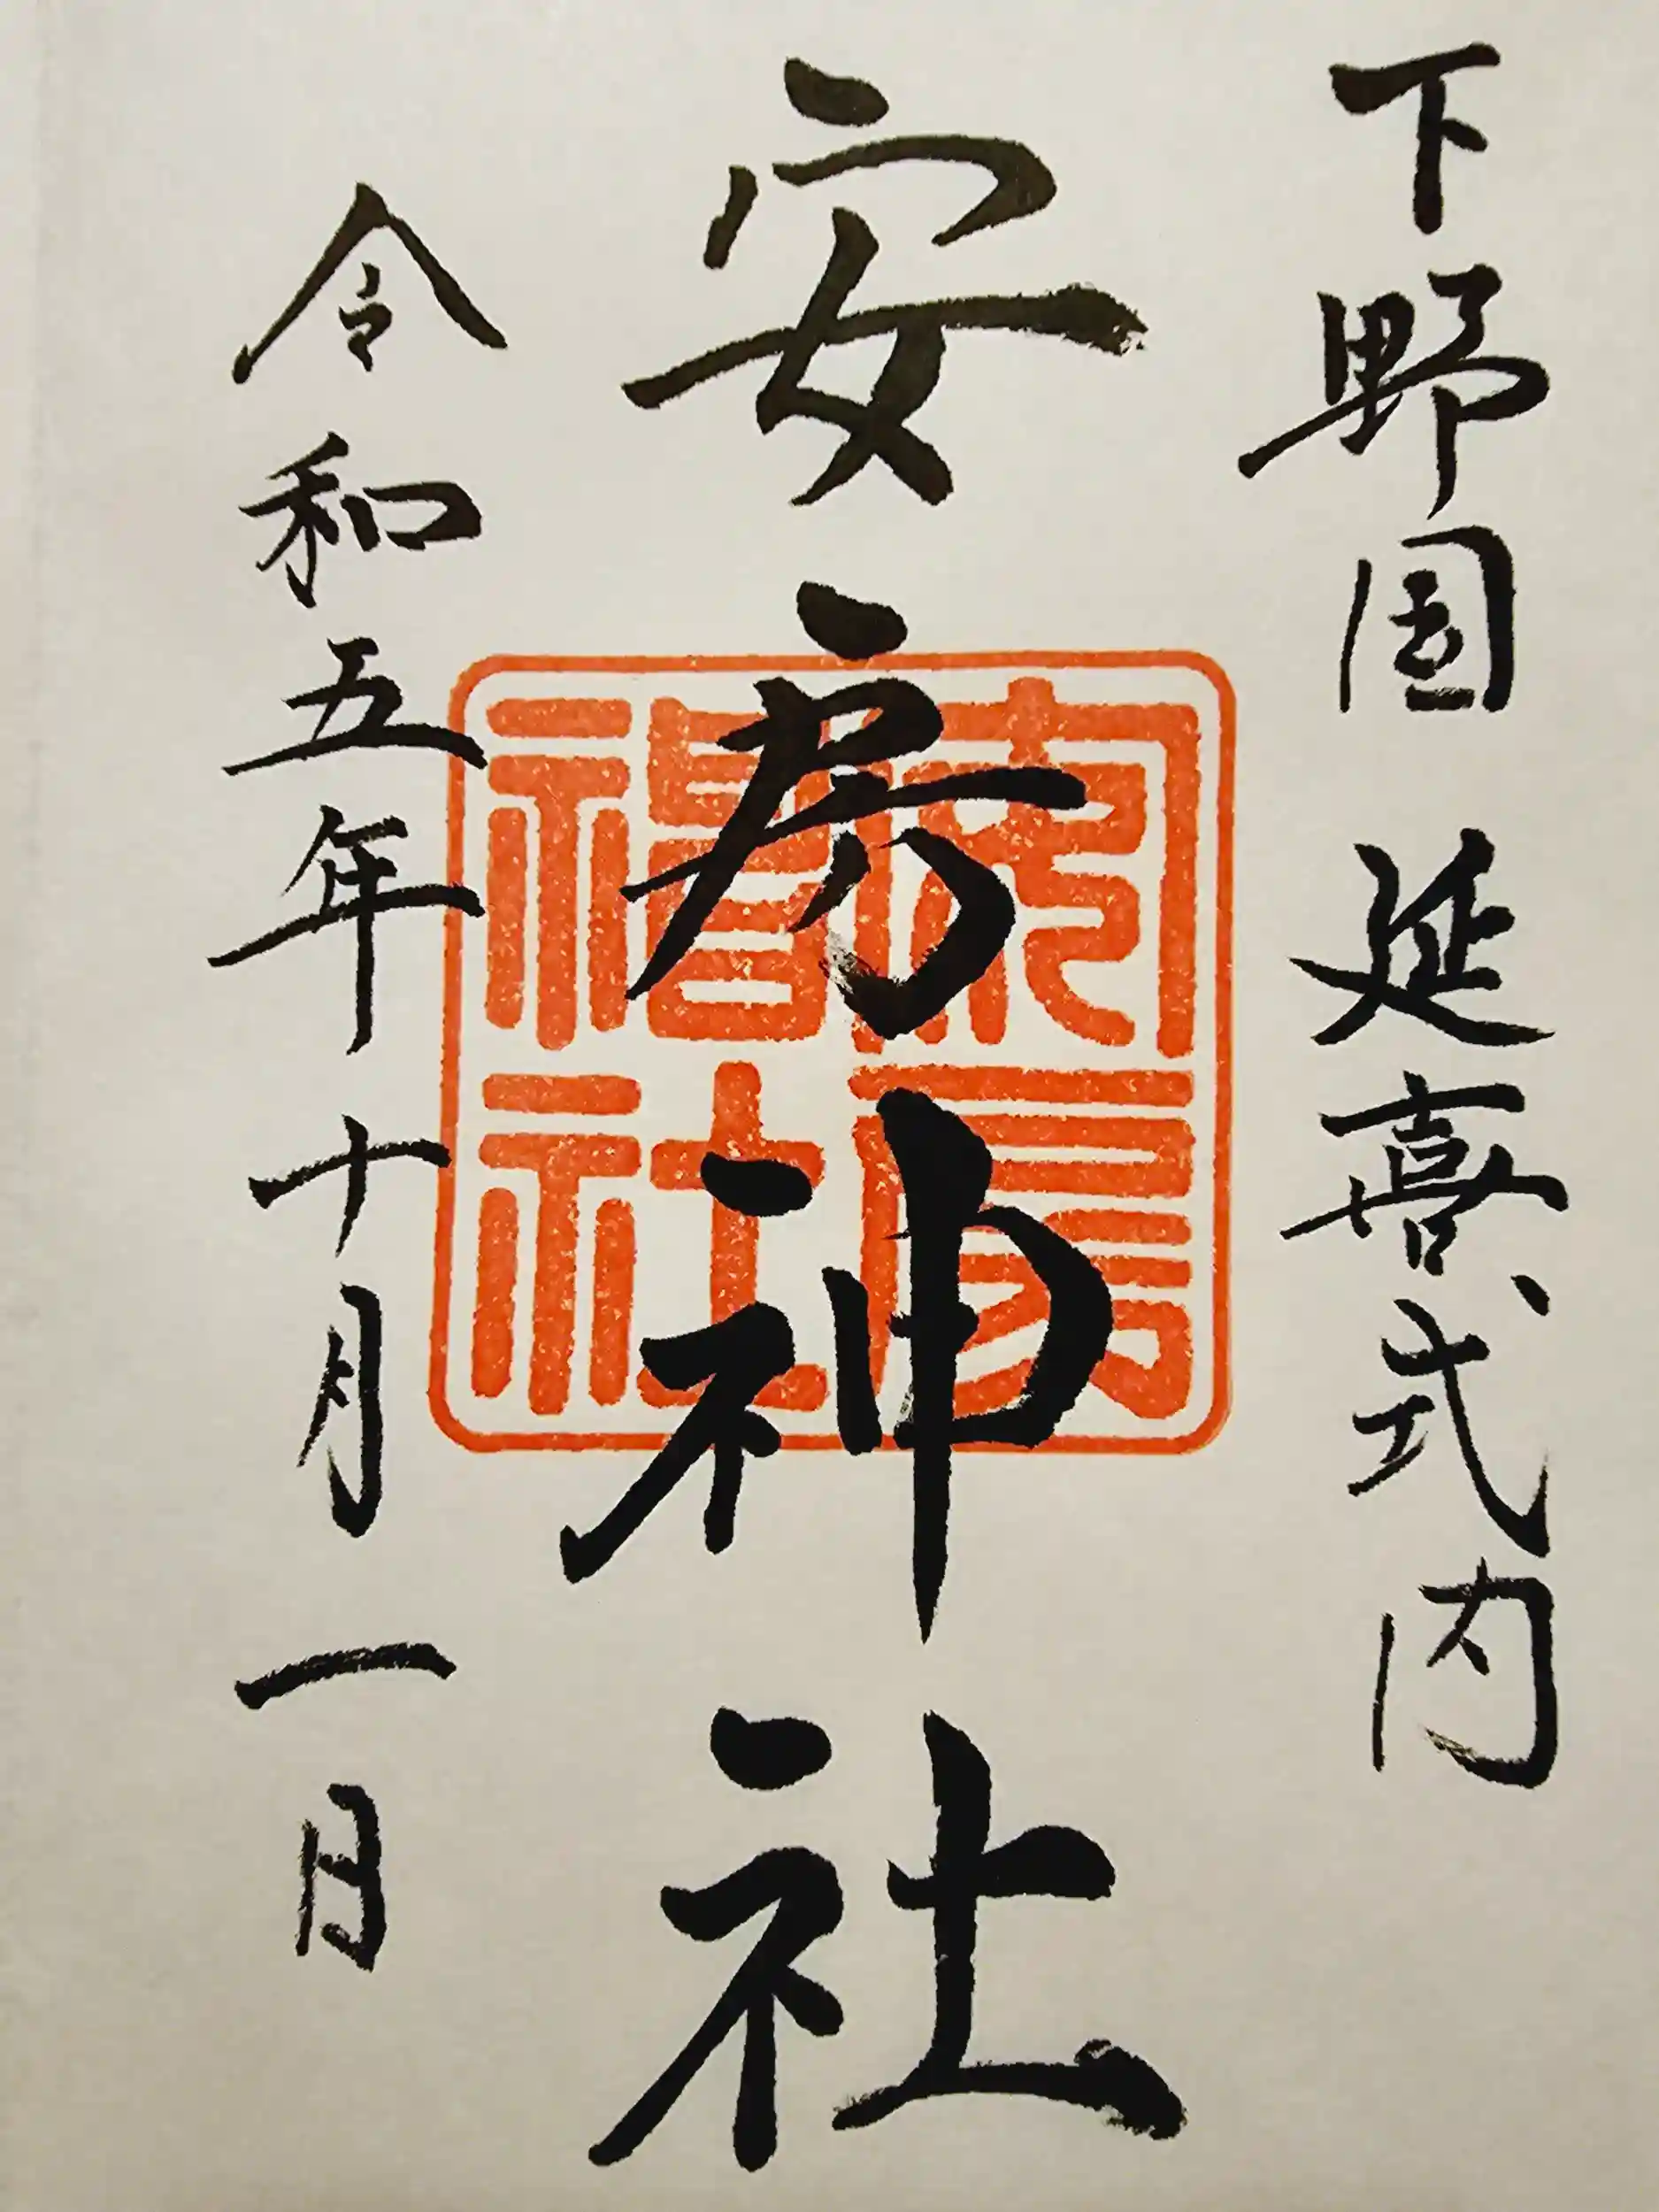 下野国 延喜式内
安房神社
安房神社
令和五年十月一日